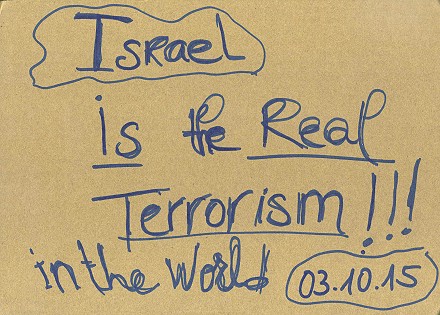 Israel
is the Real
Terrorism!!!
in the World
03.10.15